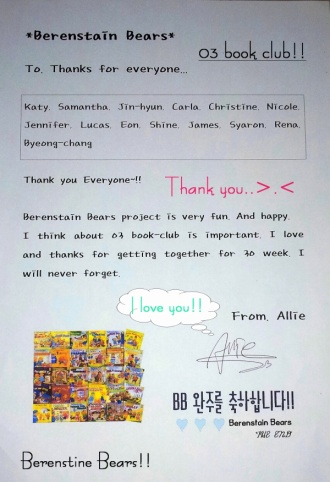 *Berenstain Bears*
03 book club!!
To. Thanks for everyone...
Katy, Samantha, Jin-hyun, Carla, Christine, Nicole,
Jennifer, Lucas, Eon, Shine, James, Syaron, Rena,
Byeong-chang
Thank you Everyone~!!
Thank you..>.<
Berenstain Bears project is very fun. And happy.
I think about 03 book-club is important. I love
and thanks for getting together for 30 week. I
will never forget.
I love you!!
From. Allie
Allie
BB 완주를 축하합니다!!
Berenstain Bears
Berenstine Bears!!